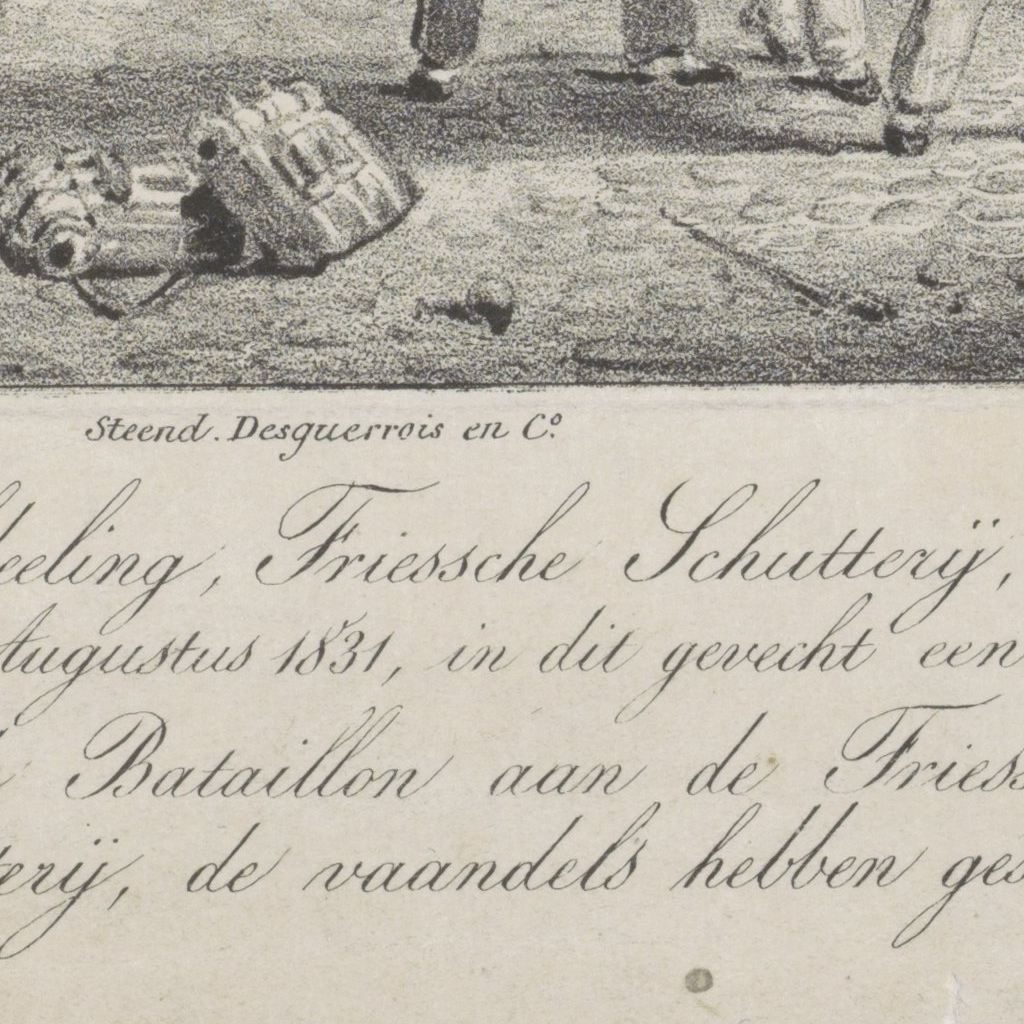 Steend. Desguerrois en Cº.
eeling, Friessche Schutterij,
Augustus 1831, in dit gevecht een
Bataillon aan de Friess
terij, de vaandels hebben ges